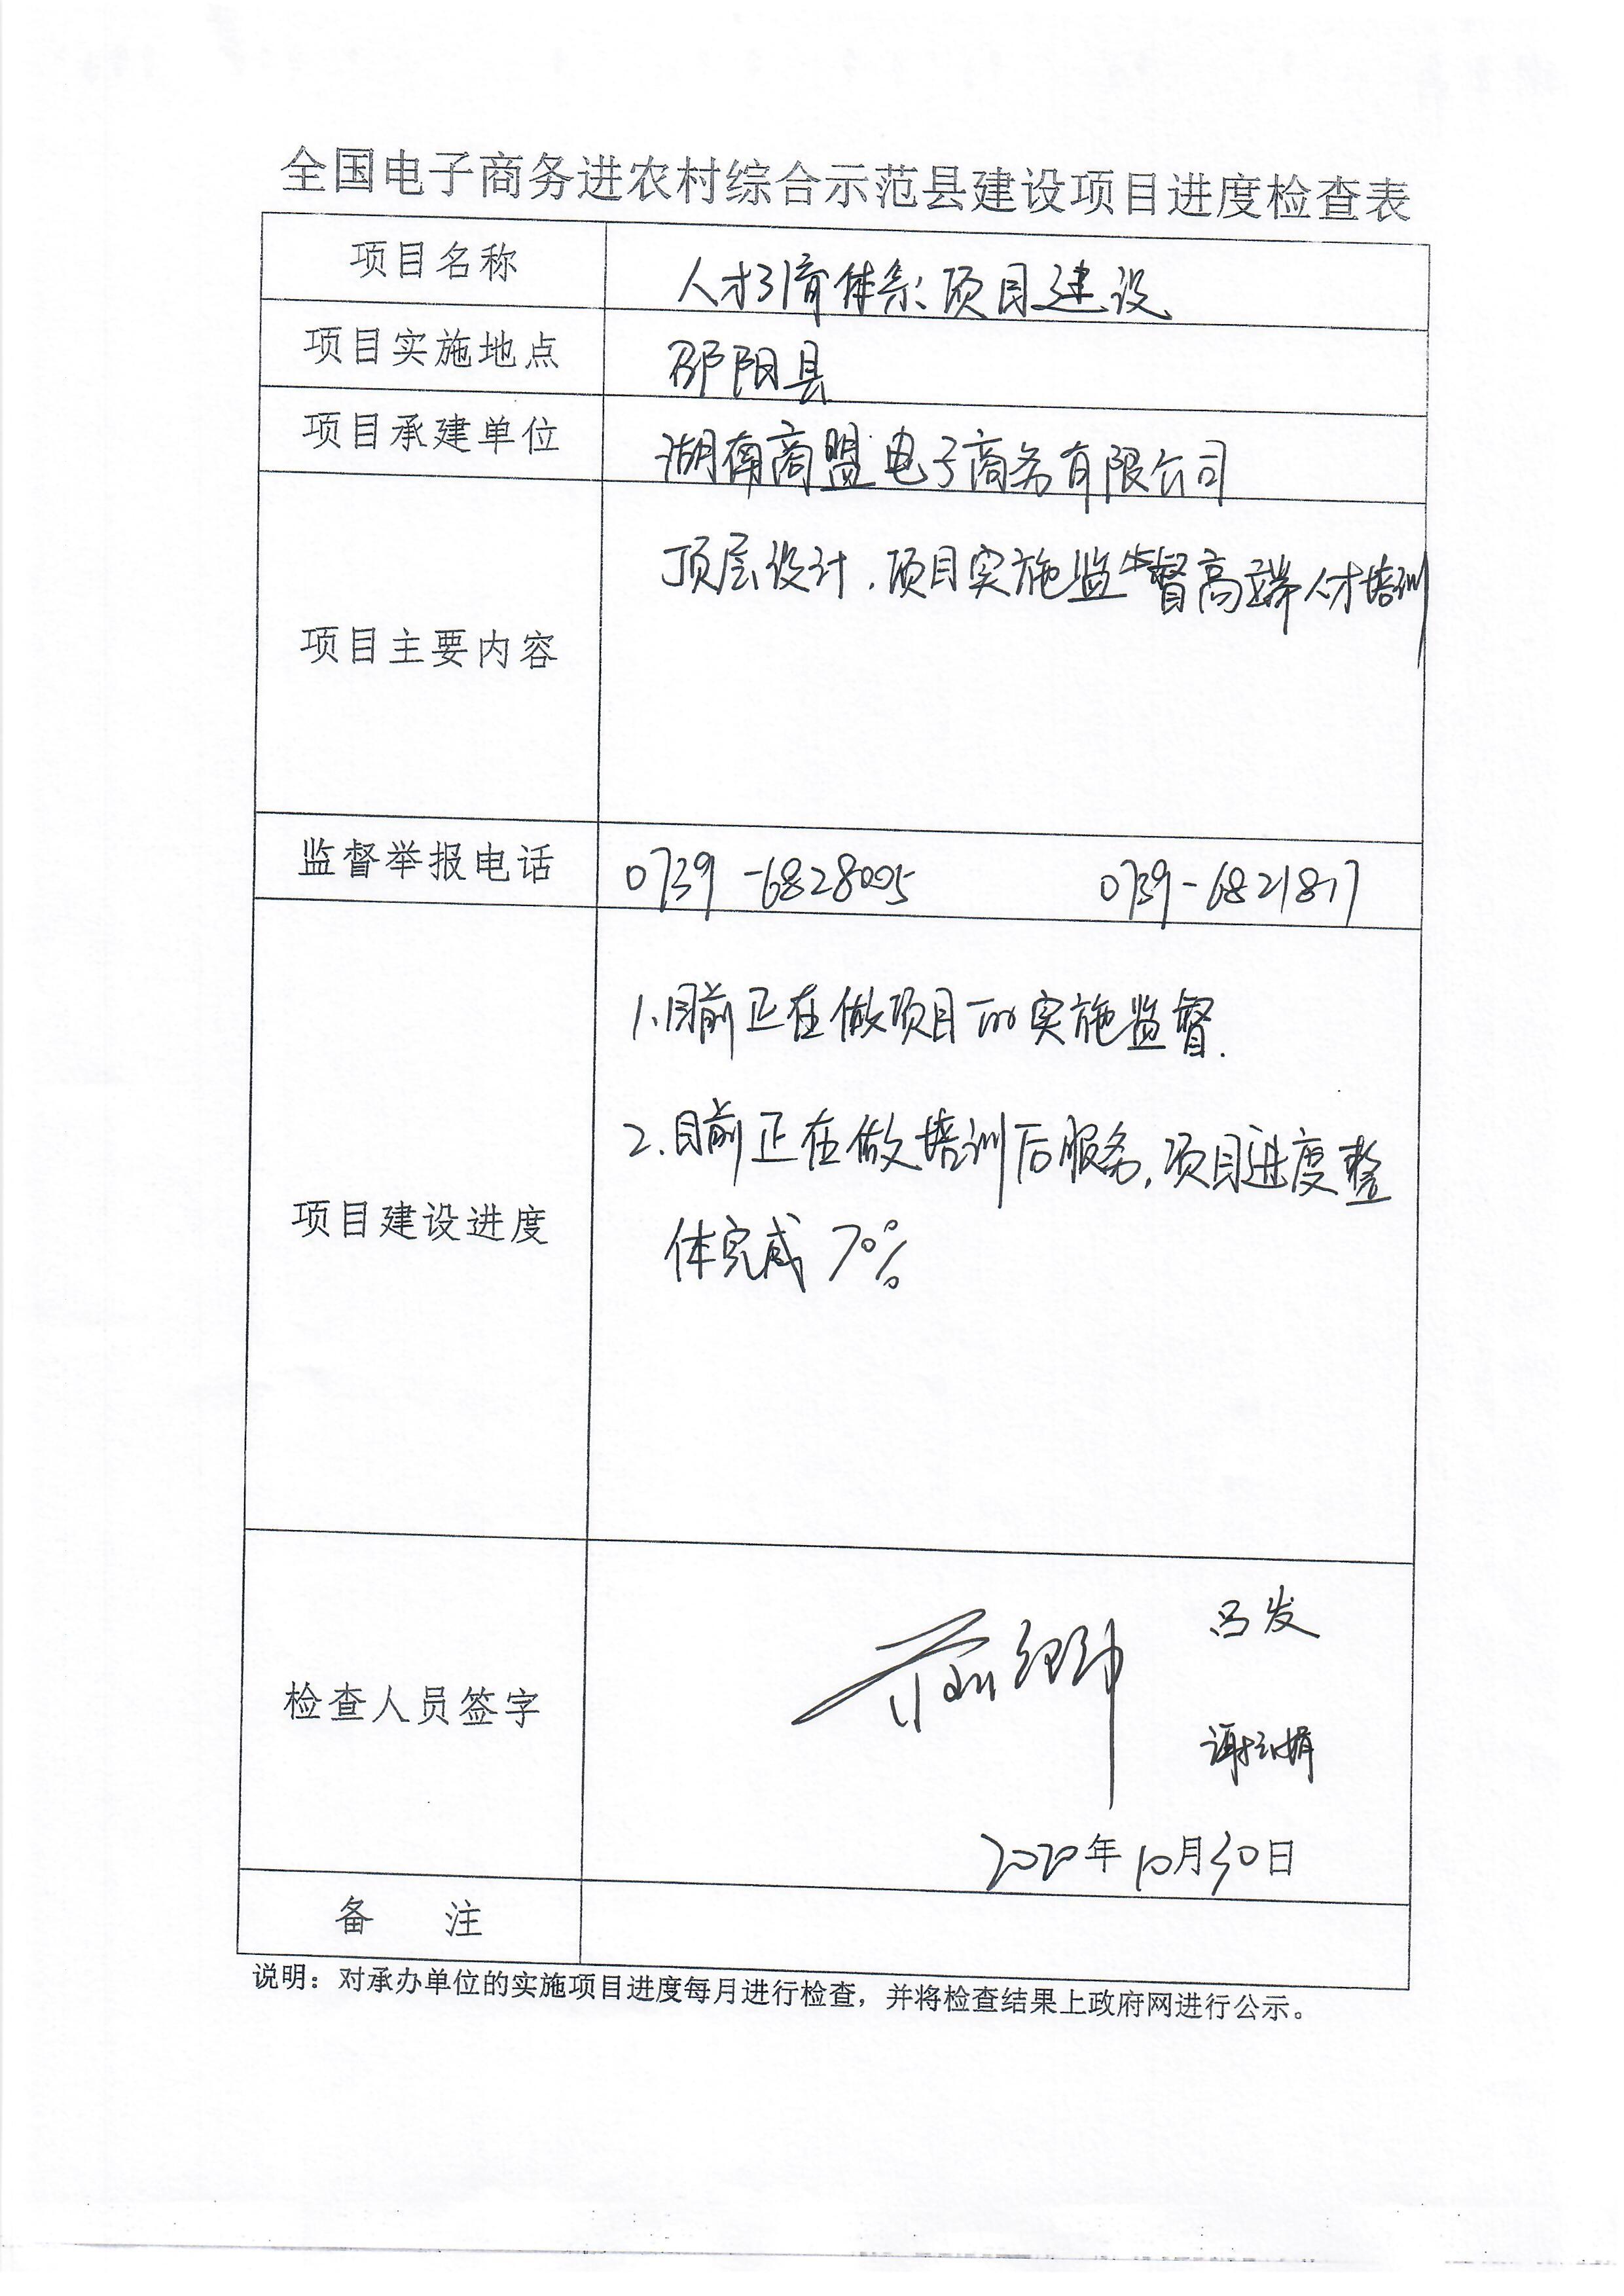 全国电子商务进农村综合示范县建设项目进度检查表
项目名称 人才引育体系项目建设
项目实施地点 邵阳县
项目承建单位 湖南商盟电子商务有限公司
项目主要内容 顶层设计.项目实施监督高端人才培训
监督举报电话 0739-6828005 0739-6821817
项目建设进度
1.目前正在做项目的实施监督.
2.目前正在做培训后服务,项目进度整
体完成70%
检查人员签字
吕发
2020年10月30日
备 注
说明:对承办单位的实施项目进度每月进行检查,并将检查结果上政府网进行公示。